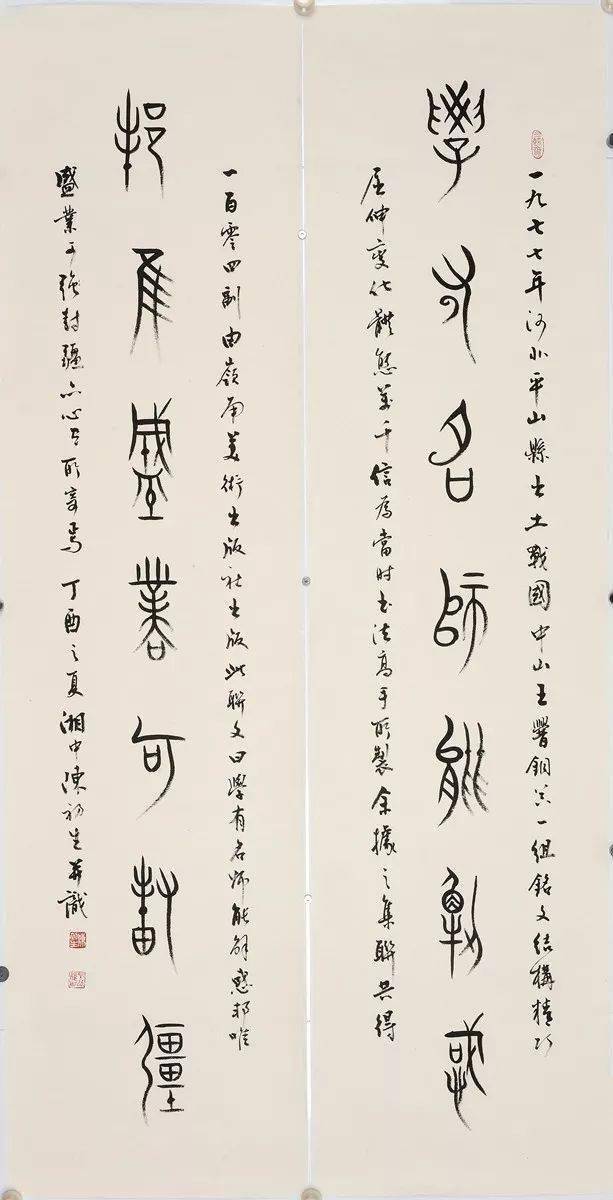 一九七七年河北平山縣出土戰國中山王𰯼銅器一組銘文結構精巧
學有名師能解惑
屈伸變化體態萬千信為當時書法高手所製余據之集聯共得
一百零四副由嶺南美術出版社出版此聯文曰學有名師能解惑邦唯
邦隹盛業可封彊
盛業可強封疆亦心有所寄焉 丁酉之夏湘中陳初生并識